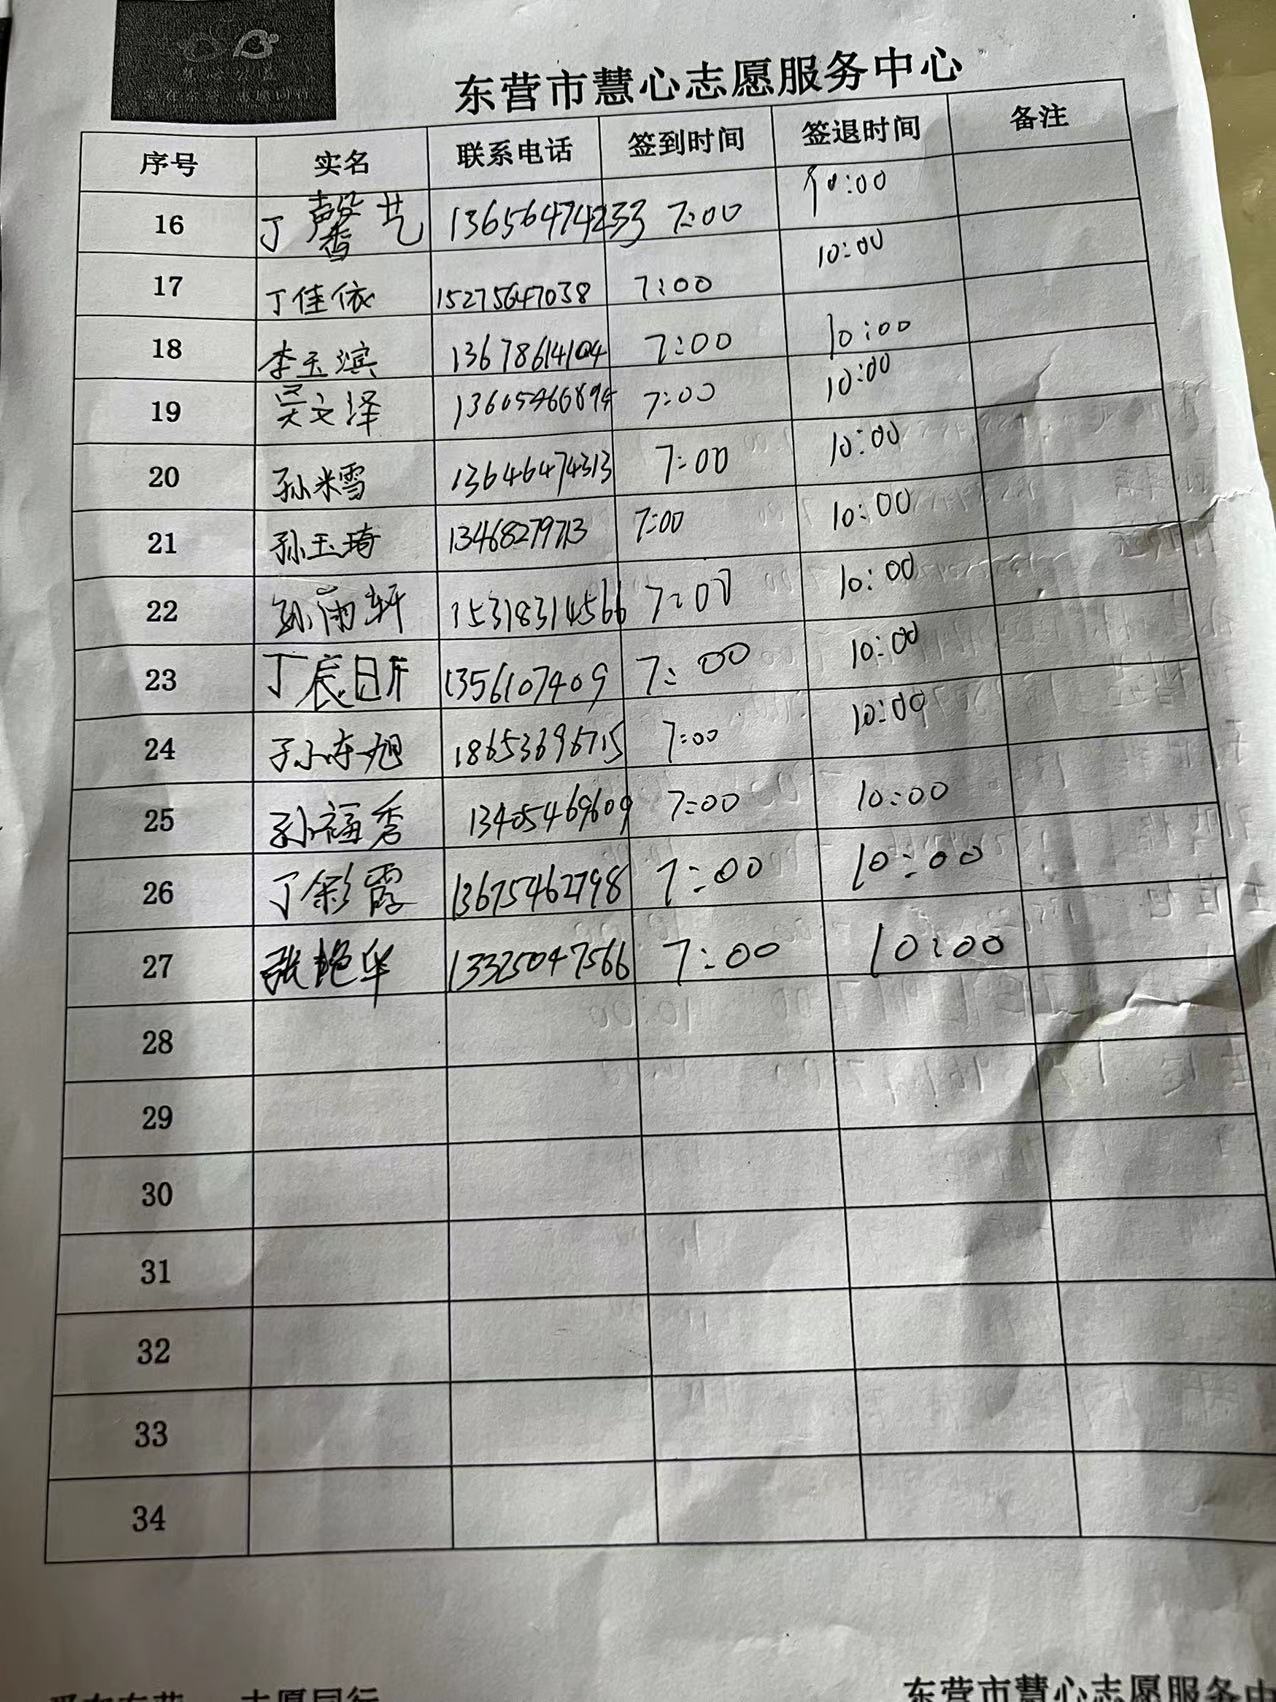 东营市慧心志愿服务中心
序号 实名 联系电话 签到时间 签退时间 备注
16 丁馨艺 13656474233 7:00 10:00
17 丁佳依 15275647038 7:00 10:00
18 李玉滨 13678614104 7:00 10:00
19 吴文泽 13605466894 7:00 10:00
20 孙米雪 13646474313 7:00 10:00
21 孙玉琦 13468279713 7:00 10:00
22 孙雨轩 15318314566 7:00 10:00
23 丁辰日斤 1356107409 7:00 10:00
24 孙东旭 18653696715 7:00 10:00
25 孙福秀 13405469609 7:00 10:00
26 丁彩霞 13675462798 7:00 10:00
27 张艳华 13325047566 7:00 10:00
28
29
30
31
32
33
34
志愿同行 东营市慧心志愿服务中